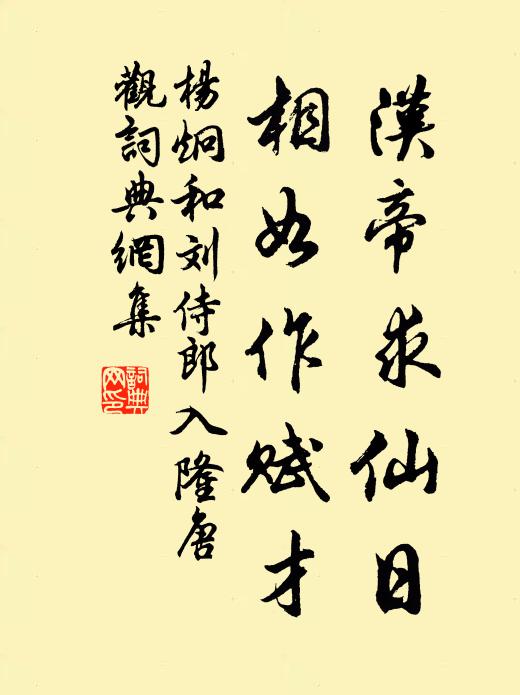 漢帝求仙日
相如作赋才
楊炯和刘侍郎入隆唐
觀詞典網集
詞典
网印